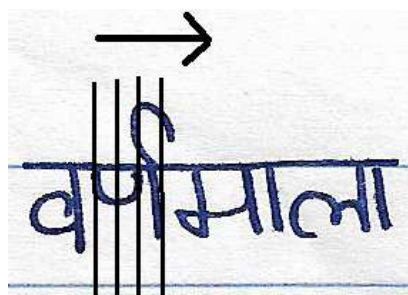 वर्णमाला